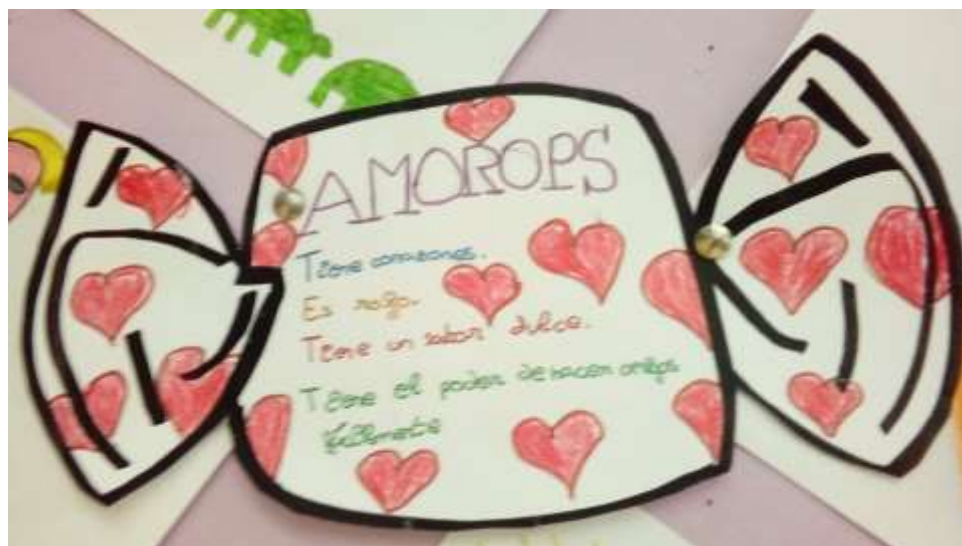 AMOROPS
Tiene corazones.
Es rojo.
Tiene un sabor dulce.
Tiene el poder de hacer amigos
fácilmente